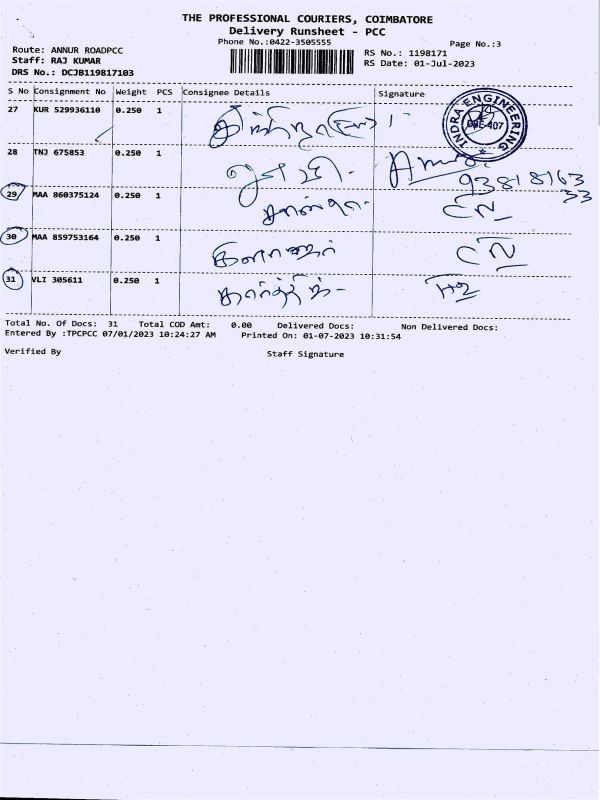 THE PROFESSIONAL COURIERS, COIMBATORE
Delivery Runsheet - PCC
Phone No.:0422-3505555
Page No.:3
Route: ANNUR ROADPCC
RS No.: 1198171
Staff: RAJ KUMAR
RS Date: 01-Jul-2023
DRS No.: DCJB119817103
S No Consignment No Weight PCS Consignee Details Signature
27 KUR 529936110 0.250 1
INDRA ENGINEERING
CBE-407
28 TNJ 675853 0.250 1
93818163
33
29 MAA 860375124 0.250 1
30 MAA 859753164 0.250 1
31 VLI 305611 0.250 1
Total No. Of Docs: 31 Total COD Amt: 0.00 Delivered Docs: Non Delivered Docs:
Entered By :TPCPCC 07/01/2023 10:24:27 AM Printed On: 01-07-2023 10:31:54
Verified By Staff Signature